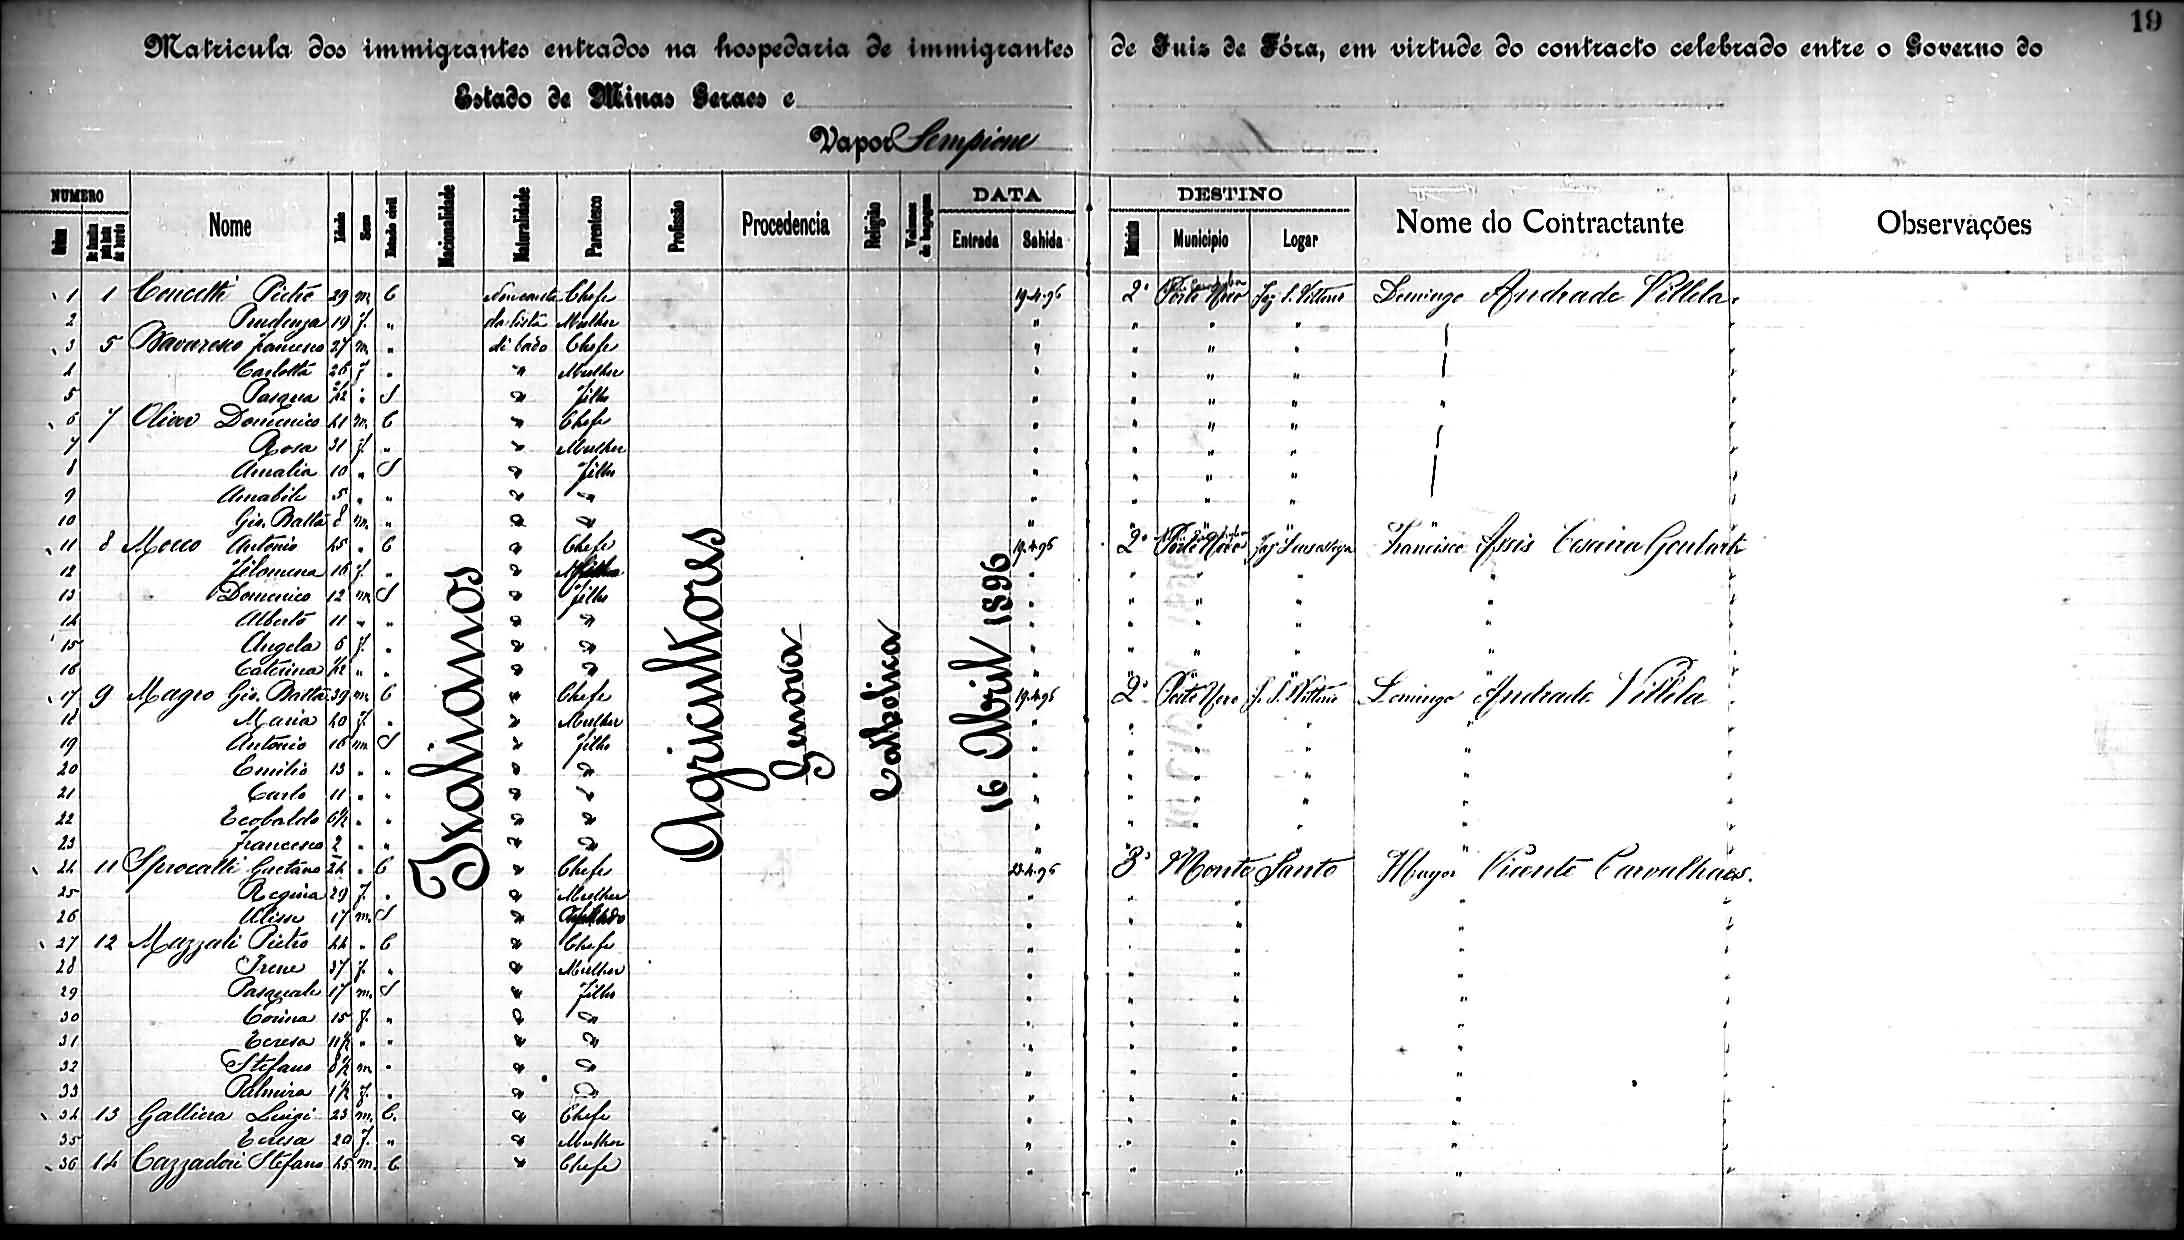 19
Matricula dos immigrantes entrados na hospedaria de immigrantes de Juiz de Fóra, em virtude do contracto celebrado entre o Governo do
Estado de Minas Geraes e
Vapor Sempione
NUMERO Nome Idade Sexo Estado civil Nacionalidade Naturalidade Parentesco Profissão Procedencia Religião Volumes de bagagem DATA DESTINO Nome do Contractante Observações
Ordem de familia pela lista de bordo Entrada Sahida Districto Municipio Logar
Italianos
Agricultores
Genova
Catholica
16 Abril 1896
1 1 Concetti Pietro 29 m. C Non consta Chefe 19-4-96 2º Ponte Nova Domingo Andrade Villela
2 Prudenza 19 f. " da lista Mulher " " " "
3 5 Bavaresco Francesco 27 m. " di bordo Chefe " " " "
4 Carlotta 26 f. " " Mulher " " " "
5 Pasqua " S " Filho " " " "
6 7 Olivo Domenico 41 m. C " Chefe " " " "
7 Rosa 31 f. " " Mulher " " " "
8 Amalia 10 " S " Filho " " " "
9 Amabile 5 " " " " " " " "
10 Gio. Batta 8 m. " " " " " " "
11 8 Mocco Antonio 45 " C " Chefe 19-4-96 2º Ponte Nova Francisco Assis Goulart
12 Filomena 16 f. " " " " " " "
13 Domenico 12 m. S " Filho " " " " "
14 Alberto 11 " " " " " " " " "
15 Angela 6 f. " " " " " " " "
16 Caterina " " " " " " " " "
17 9 Magro Gio. Batta 39 m. C " Chefe 19-4-96 2º Ponte Nova Domingo Andrade Villela
18 Maria 40 f. " " Mulher " " " "
19 Antonio 16 m. S " Filho " " " " "
20 Emilio 13 " " " " " " " " "
21 Carlo 11 " " " " " " " " "
22 Teobaldo 6½ " " " " " " " " "
23 Francesco 2 " " " " " " " " "
24 11 Sprocatti Gaetano 24 " C " Chefe 23-4-96 3º Monte Santo Major Vicente Carvalhaes.
25 Regina 29 f. " " Mulher " " " "
26 Ulisse 17 m. S " " " " "
27 12 Mazzali Pietro 44 " C " Chefe " " " "
28 Irene 37 f. " " Mulher " " " "
29 Pasquale 17 m. S " Filho " " " "
30 Corina 15 f. " " " " " " "
31 Teresa 11½ " " " " " " " "
32 Stefano 8½ m " " " " " " "
33 Palmira 1½ f. " " " " " " "
34 13 Galliera Luigi 23 m. C. " Chefe " " " "
35 Teresa 20 f. " " Mulher " " " "
36 14 Cazzadori Stefano 45 m. C " Chefe " " " "